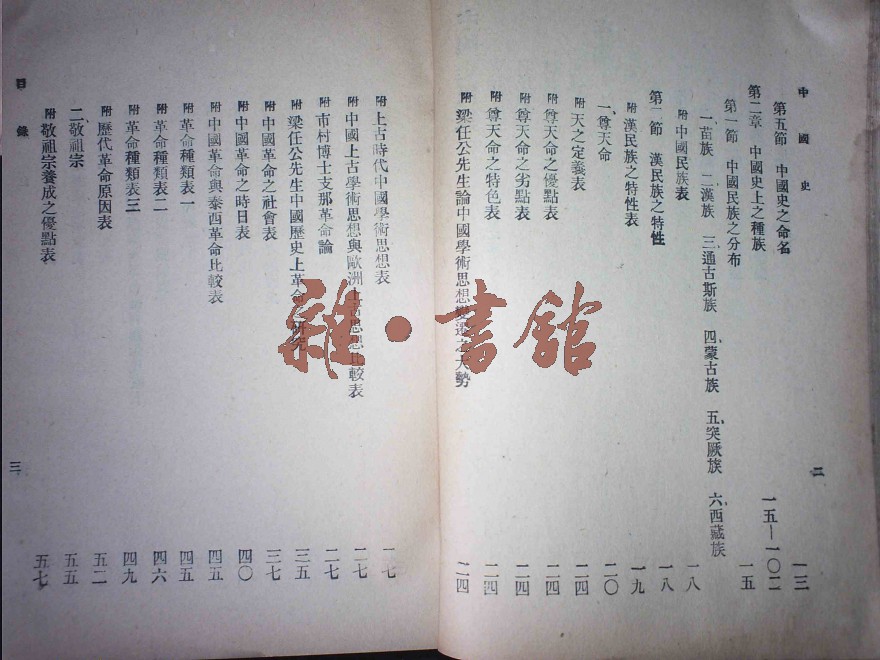 中國史
第五節 中國史之命名 一三
第二章 中國史上之種族 一五—一〇二
第一節 中國民族之分布 一五
一、苗族 二、漢族 三、通古斯族 四、蒙古族 五、突厥族 六、西藏族
附 中國民族表 一八
第二節 漢民族之特性 一八
附 漢民族之特性表 一九
一、尊天命 二〇
附 天之定義表 二四
附 尊天命之優點表 二四
附 尊天命之劣點表 二四
附 尊天命之特色表 二四
附 梁任公先生論中國學術思想變遷之大勢 二四
二
附 上古時代中國學術思想表 二七
附 中國上古學術思想與歐洲上古思想比較表 二七
附 市村博士支那革命論 二七
附 梁任公先生中國歷史上革命之研究 三五
附 中國革命之社會表 三七
附 中國革命之時日表 四〇
附 中國革命與泰西革命比較表 四五
附 革命種類表一 四五
附 革命種類表二 四六
附 革命種類表三 四九
附 歷代革命原因表 五二
二、敬祖宗 五五
附 敬祖宗養成之優點表 五七
目錄
三
雜·書館